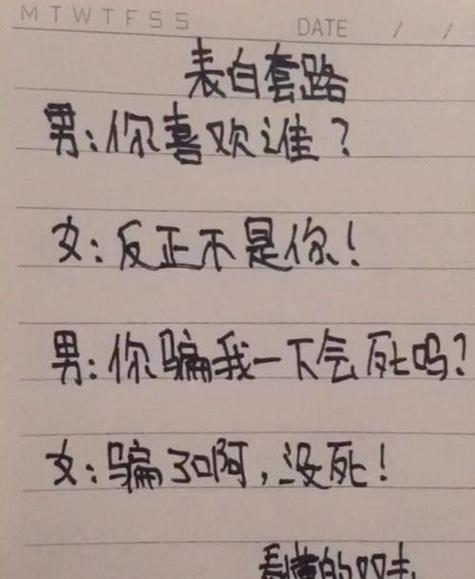 M T W T F S S
DATE / /
表白套路
男:你喜欢谁?
女:反正不是你!
男:你骗我一下会死吗?
女:骗了啊,没死!